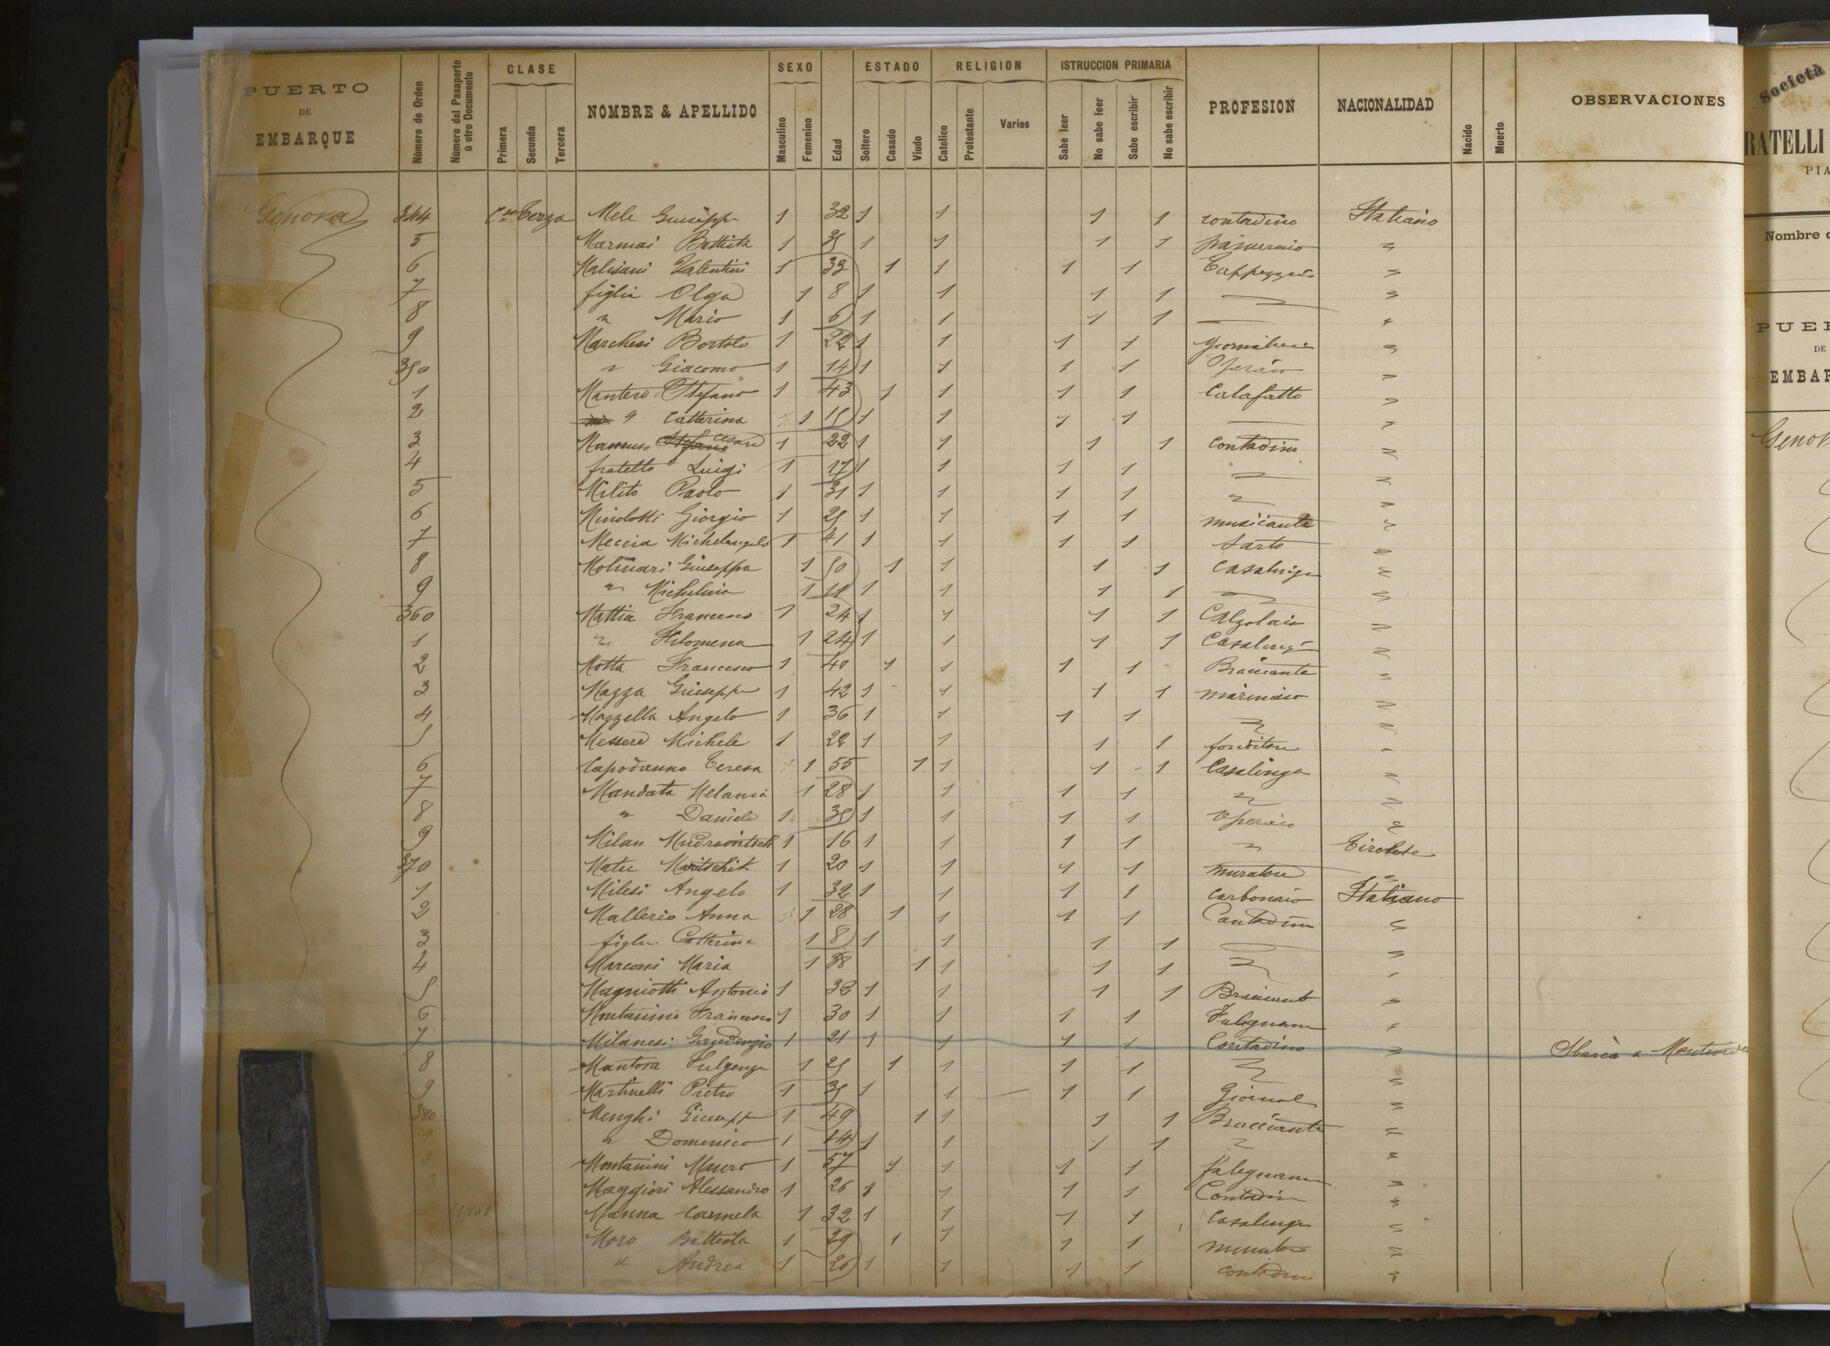 PUERTO DE EMBARQUE Número de Orden Número del Pasaporte ú otro Documento CLASE Primera Secunda Tercera NOMBRE & APELLIDO SEXO Masculino Femenino Edad ESTADO Soltero Casado Viudo RELIGION Catolico Protestante Varios ISTRUCCION PRIMARIA Sabe leer No sabe leer Sabe escribir No sabe escribir PROFESION NACIONALIDAD Nacido Muerto OBSERVACIONES
Genova 344 Terza Mele Giuseppe 1 32 1 1 1 1 contadino Italiano
5 Marmai Battista 1 35 1 1 1 1 "
6 Malisani Valentini 1 33 1 1 1 1 "
7 figlia Olga 1 8 1 1 1 1 "
8 " Mario 1 6 1 1 1 1 "
9 Marchesi Bortolo 1 22 1 1 1 1 "
350 " Giacomo 1 14 1 1 1 1 Operaio "
1 Mantero Stefano 1 43 1 1 1 1 Calafatto "
2 " Catterina 1 15 1 1 1 1 "
3 Cesare 1 22 1 1 1 1 Contadino "
4 fratello Luigi 1 17 1 1 1 1 " "
5 Milito Paolo 1 31 1 1 1 1 " "
6 Minolotti Giorgio 1 25 1 1 1 1 musicante "
7 Meccia Michelangelo 1 41 1 1 1 1 Sarto "
8 Molinari Giuseppa 1 50 1 1 1 1 Casalinga "
9 " Michelina 1 11 1 1 1 1 "
360 Mattia Francesco 1 24 1 1 1 1 Calzolaio "
1 " Filomena 1 24 1 1 1 1 Casalinga "
2 Motta Francesco 1 40 1 1 1 1 Bracciante "
3 Mazza Giuseppe 1 42 1 1 1 1 marinaio "
4 Mazzella Angelo 1 36 1 1 1 1 " "
5 Messere Michele 1 22 1 1 1 1 fonditore "
6 Capodanno Teresa 1 55 1 1 1 1 Casalinga "
7 Mandata Melania 1 28 1 1 1 1 " "
8 " Daniele 1 35 1 1 1 1 Operaio "
9 Milan 1 16 1 1 1 1 " Tirolese
370 1 20 1 1 1 1 muratore "
1 Milesi Angelo 1 32 1 1 1 1 carbonaio Italiano
2 Mallerio Anna 1 28 1 1 1 1 Contadina "
3 figlia Catterina 1 8 1 1 1 1 "
4 Marconi Maria 1 38 1 1 1 1 " "
5 Magniotti Antonio 1 32 1 1 1 1 Bracciante "
6 Montanino Francesco 1 30 1 1 1 1 Falegname "
7 Milanesi Gaudenzio 1 21 1 1 1 1 Contadino " Sbarca a Montevideo
8 Mantova Fulgenza 1 25 1 1 1 1 " "
9 Martinelli Pietro 1 35 1 1 1 1 Giornal "
380 Menghi Giuseppe 1 49 1 1 1 1 Bracciante "
" Domenico 1 24 1 1 1 1 " "
Montanini Mauro 1 57 1 1 1 1 falegname "
Maggiori Alessandro 1 26 1 1 1 1 Contadino "
Manna Carmela 1 32 1 1 1 1 Casalinga "
Moro Battista 1 29 1 1 1 1 "
" Andrea 1 26 1 1 1 1 contadino "
Società
RATELLI
PIA
Nombre d
PUER
DE
EMBAR
Genov